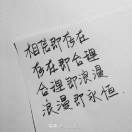 相信即存在
存在即合理
合理即浪漫
浪漫即永恒.